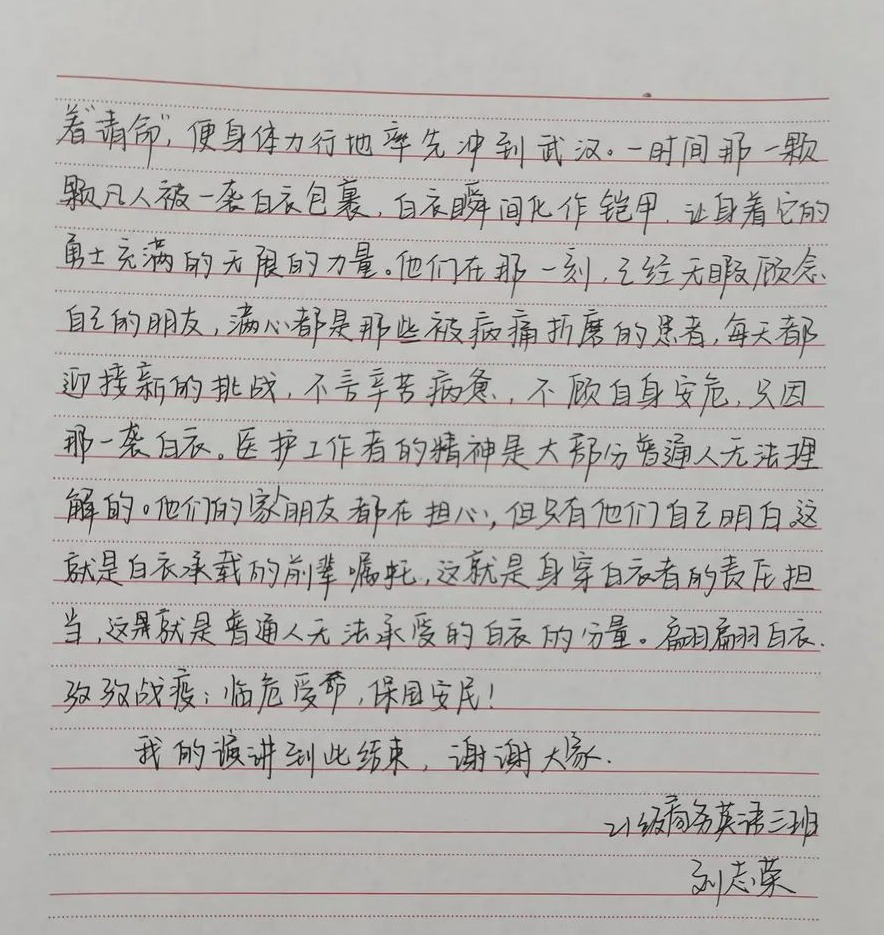 着"请命",便身体力行地率先冲到武汉。一时间那一颗
颗凡人被一袭白衣包裹,白衣瞬间化作铠甲,让身着它的
勇士充满的无限的力量。他们在那一刻,已经无暇顾念
自己的朋友,满心都是那些被病痛折磨的患者,每天都
迎接新的挑战,不言辛苦病惫,不顾自身安危,只因
那一袭白衣。医护工作者的精神是大部份普通人无法理
解的。他们的家人朋友都在担心,但只有他们自己明白这
就是白衣承载的前辈嘱托,这就是身穿白衣者的责任担
当,这就是普通人无法承受的白衣的分量。翩翩白衣.
孜孜战疫;临危受命,保国安民!
我的演讲到此结束,谢谢大家.
21级商务英语三班
刘志荣